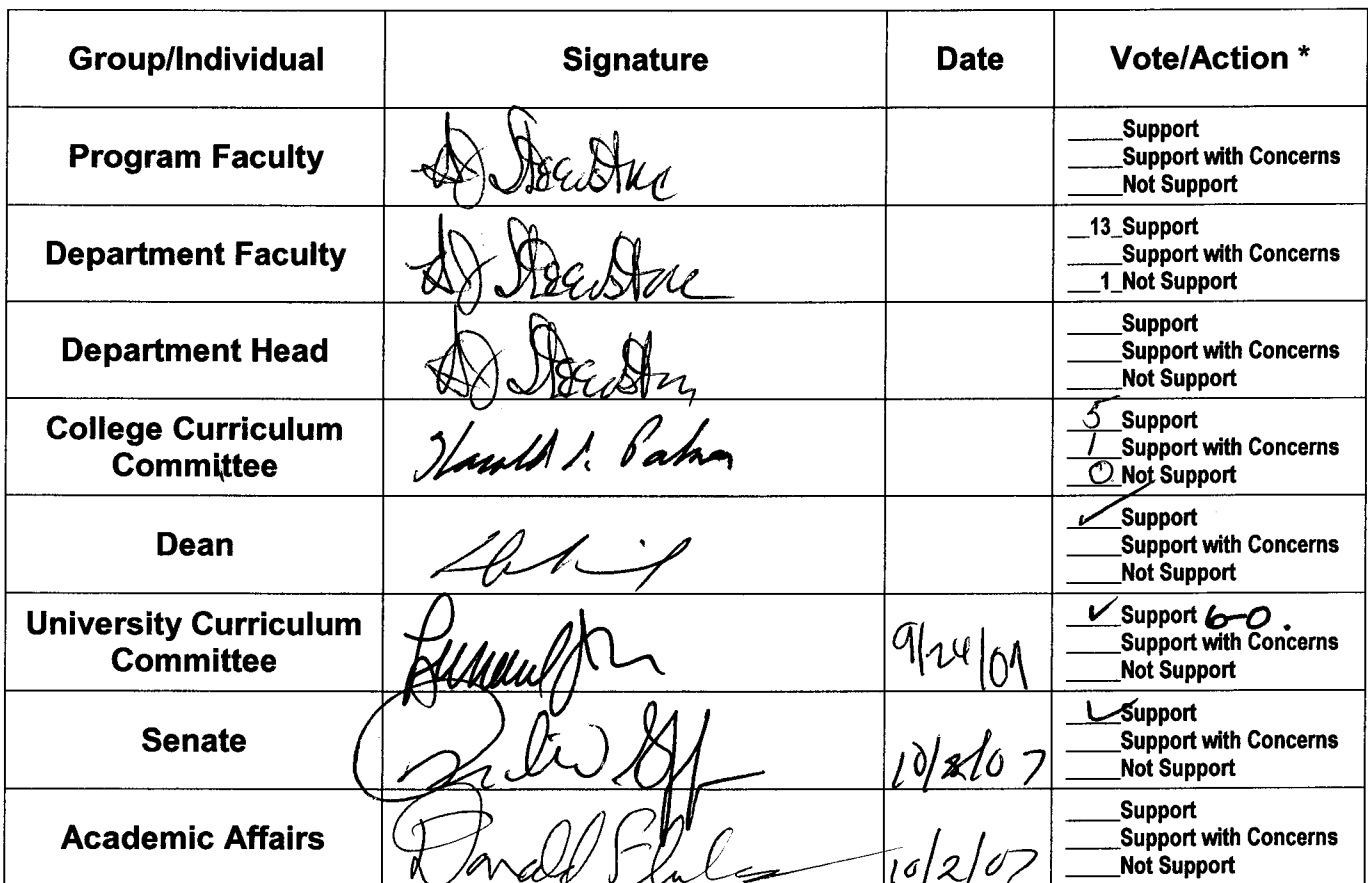 Group/Individual Signature Date Vote/Action *
Program Faculty
____Support
____Support with Concerns
____Not Support
Department Faculty
__13_Support
____Support with Concerns
___1_Not Support
Department Head
____Support
____Support with Concerns
____Not Support
College Curriculum
Committee
Harold A. Palmer
5 Support
1 Support with Concerns
0 Not Support
Dean
✓ Support
____Support with Concerns
____Not Support
University Curriculum
Committee
9/24/07
✓ Support 6-0.
____Support with Concerns
____Not Support
Senate
✓ Support
____Support with Concerns
____Not Support
Academic Affairs
Donald
10/2/07
____Support
____Support with Concerns
____Not Support